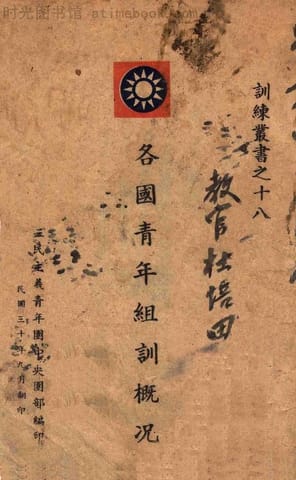 时光图书馆 - atimebook.com
訓練叢書之十八
教官杜培田
各國青年組訓概況
三民主義青年團中央團部編印
民國三十年九月翻印